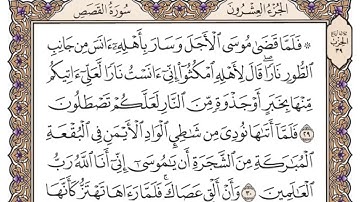 الجزء العشرون سورة القصص
۞ فَلَمَّا قَضَىٰ مُوسَى ٱلْأَجَلَ وَسَارَ بِأَهْلِهِۦٓ ءَانَسَ مِن جَانِبِ
ٱلطُّورِ نَارًا قَالَ لِأَهْلِهِ ٱمْكُثُوٓا۟ إِنِّىٓ ءَانَسْتُ نَارًا لَّعَلِّىٓ ءَاتِيكُم
مِّنْهَا بِخَبَرٍ أَوْ جَذْوَةٍ مِّنَ ٱلنَّارِ لَعَلَّكُمْ تَصْطَلُونَ
٢٩ فَلَمَّآ أَتَىٰهَا نُودِىَ مِن شَٰطِئِ ٱلْوَادِ ٱلْأَيْمَنِ فِى ٱلْبُقْعَةِ
ٱلْمُبَٰرَكَةِ مِنَ ٱلشَّجَرَةِ أَن يَٰمُوسَىٰٓ إِنِّىٓ أَنَا ٱللَّهُ رَبُّ
ٱلْعَٰلَمِينَ ٣٠ وَأَنْ أَلْقِ عَصَاكَ فَلَمَّا رَءَاهَا تَهْتَزُّ كَأَنَّهَا